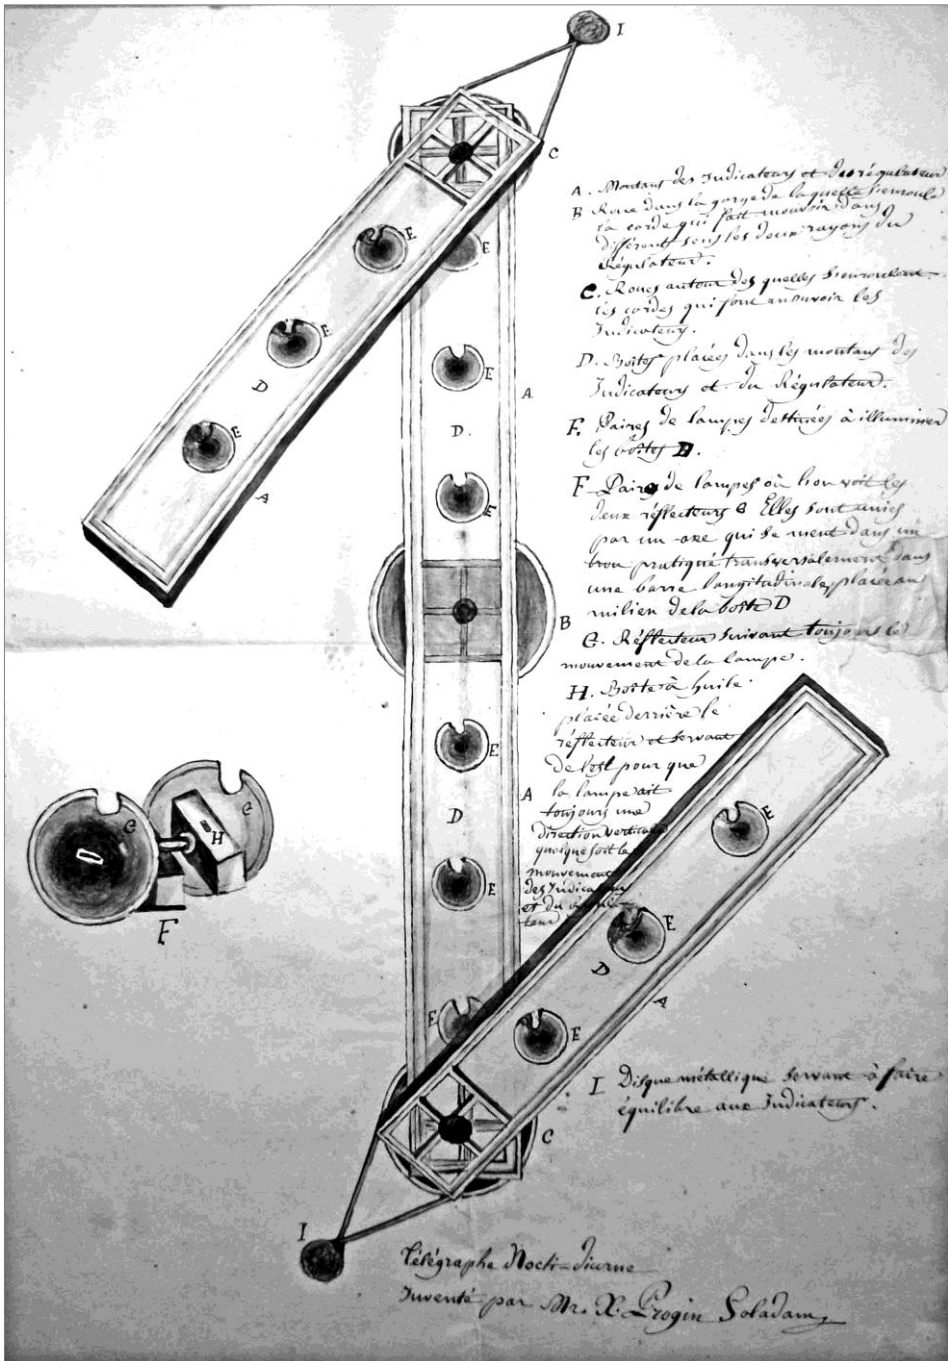 I
C
A. Montans des Indicateurs et du régulateur
B Roue dans la gorge de laquelle s'enroule
la corde qui fait mouvoir dans
différents sens les deux rayons du
Régulateur.
C. Roues autour des quelles s'enroulent
les cordes qui font mouvoir les
Indicateurs.
D. Boîtes placées dans les montans des
Indicateurs et du Régulateur.
E. Paires de lampes destinées à illuminer
les boîtes D.
F Paires de lampes où l'on voit les
deux réflecteurs G Elles sont unies
par un axe qui se meut dans un
trou pratiqué transversalement dans
une barre longitudinale placée au
milieu de la boîte D
G. Réflecteur suivant toujours le
mouvement de la lampe.
H. Boîte à huile
placée derrière le
réflecteur et servant
de lest pour que
la lampe ait
toujours une
direction verticale
quelque soit le
mouvement
des Indicateurs
et du Régula-
teur
E
E
E
E
D
E
A
D.
E
E
A
B
E
A
D
E
G
G
H
F
E
E
D
A
E
E
C
I Disque métallique servant à faire
équilibre aux Indicateurs.
I
Télégraphe Nocti-diurne
Inventé par Mr. X. Progin Soladam